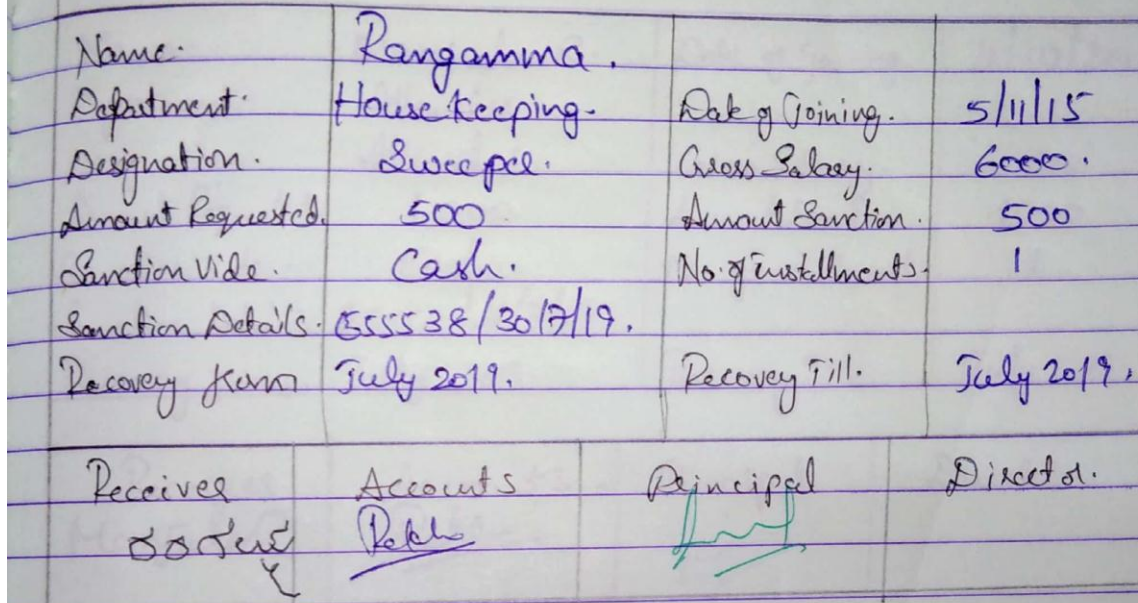 Name. Rangamma.
Department. House keeping. Date of Joining. 5/11/15
Designation. Sweeper. Gross Salary. 6000.
Amount Requested. 500 Amount Sanction. 500
Sanction Vide. Cash. No. of Installments. 1
Sanction Details. 555538/30/7/19.
Recovery from July 2019. Recovey Till. July 2019.
Receiver Accounts Principal Director.